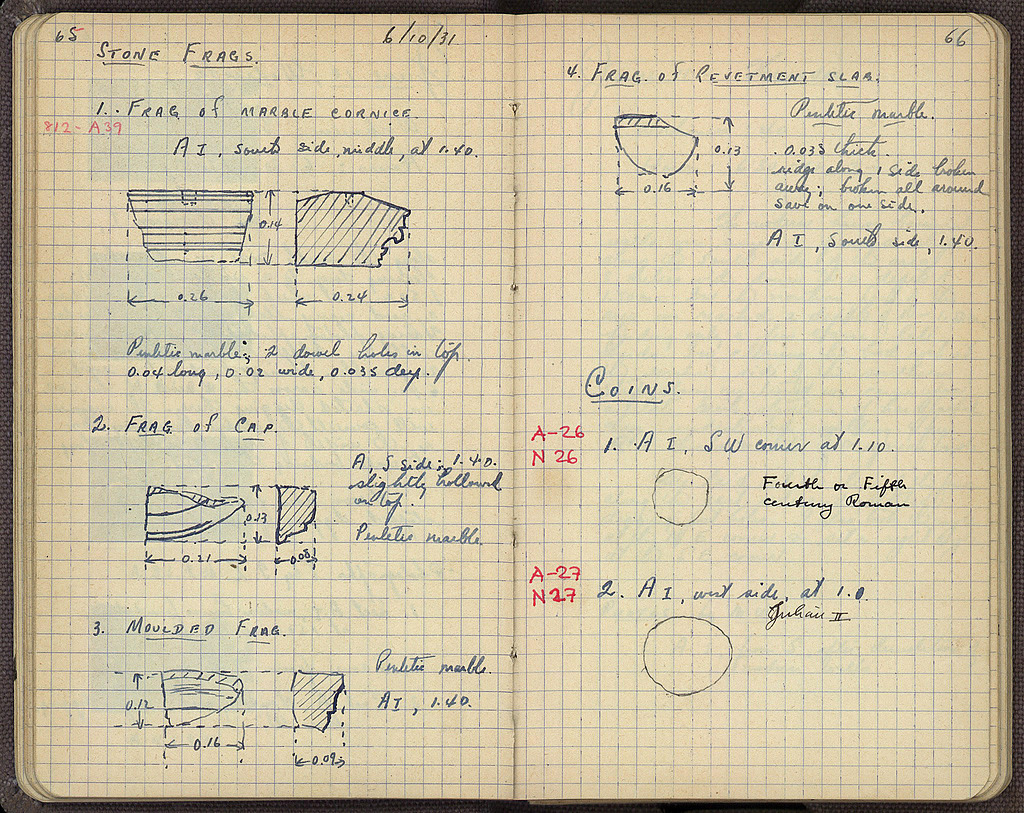 65
6/10/31
STONE FRAGS.
1. FRAG of MARBLE CORNICE.
812-A39
A I, south side, middle, at 1.40.
0.14
0.26
0.24
Pentelic marble; 2 dowel holes in top.
0.04 long, 0.02 wide, 0.035 deep.
2. FRAG of CAP.
A, S side; 1.40.
slightly hollowed
on top.
Pentelic marble.
0.13
0.21
0.08
3. MOULDED FRAG.
Pentelic marble.
A I, 1.40.
0.12
0.16
0.09
66
4. FRAG. of REVETMENT SLAB.
Pentelic marble.
0.13
0.16
0.035 thick.
ridge along 1 side broken
away; broken all around
save on one side.
A I, south side, 1.40.
COINS.
A-26
N 26
1. A I, SW corner at 1.10.
Fourth or Fifth
century Roman
A-27
N 27
2. A I, west side, at 1.0.
Julian II